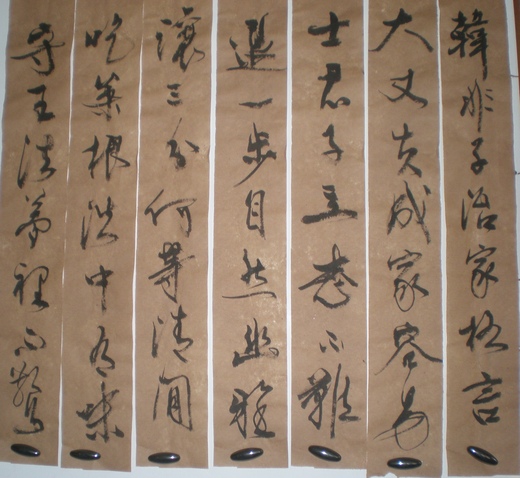 韓非子治家格言
大丈夫成家容易
士君子立志不難
退一步自然幽雅
讓三分何等清閒
吃菜根淡中有味
守王法夢裡不驚